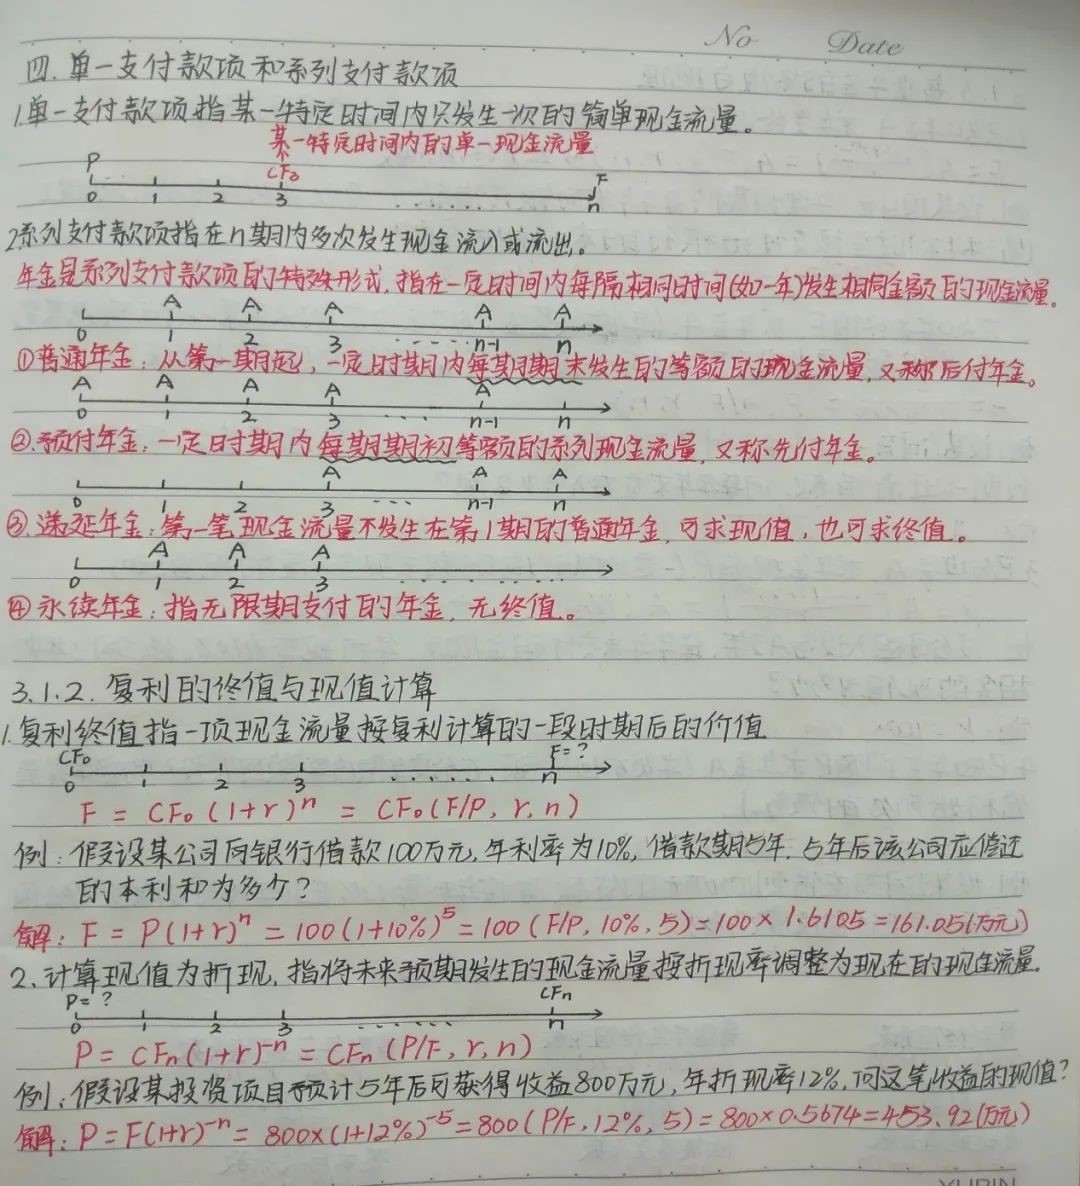 No Date
四. 单一支付款项和系列支付款项
1.单一支付款项指某一特定时间内只发生一次的简单现金流量。
某一特定时间内的单一现金流量
P CF₃ F
0 1 2 3 ...... n
2.系列支付款项指在n期内多次发生现金流入或流出。
年金是系列支付款项的特殊形式,指在一定时间内每隔相同时间(如一年)发生相同金额的现金流量。
A A A A A
0 1 2 3 ...... n-1 n
①普通年金:从第一期起,一定时期内每期期末发生的等额的现金流量,又称后付年金。
A A A A A
0 1 2 3 .... n-1 n
②预付年金:一定时期内每期期初等额的系列现金流量,又称先付年金。
A A A
0 1 2 3 .... n-1 n
③递延年金:第一笔现金流量不发生在第1期的普通年金,可求现值,也可求终值。
A A A
0 1 2 3
④永续年金:指无限期支付的年金,无终值。
3.1.2.复利的终值与现值计算
1.复利终值指一项现金流量按复利计算的一段时期后的价值
CF₀ F=?
0 1 2 3 ...... n
F = CF₀(1+r)ⁿ = CF₀(F/P, r, n)
例:假设某公司向银行借款100万元,年利率为10%,借款期5年,5年后该公司应偿还
的本利和为多少?
解:F = P(1+r)ⁿ = 100(1+10%)⁵ = 100(F/P, 10%, 5) = 100×1.6105 = 161.05(万元)
2.计算现值为折现,指将未来预期发生的现金流量按折现率调整为现在的现金流量。
P=? CFn
0 1 2 3 ...... n
P = CFn(1+r)⁻ⁿ = CFn(P/F, r, n)
例:假设某投资项目预计5年后可获得收益800万元,年折现率12%,问这笔收益的现值?
解:P=F(1+r)⁻ⁿ = 800×(1+12%)⁻⁵ = 800(P/F,12%,5) = 800×0.5674 = 453.92(万元)